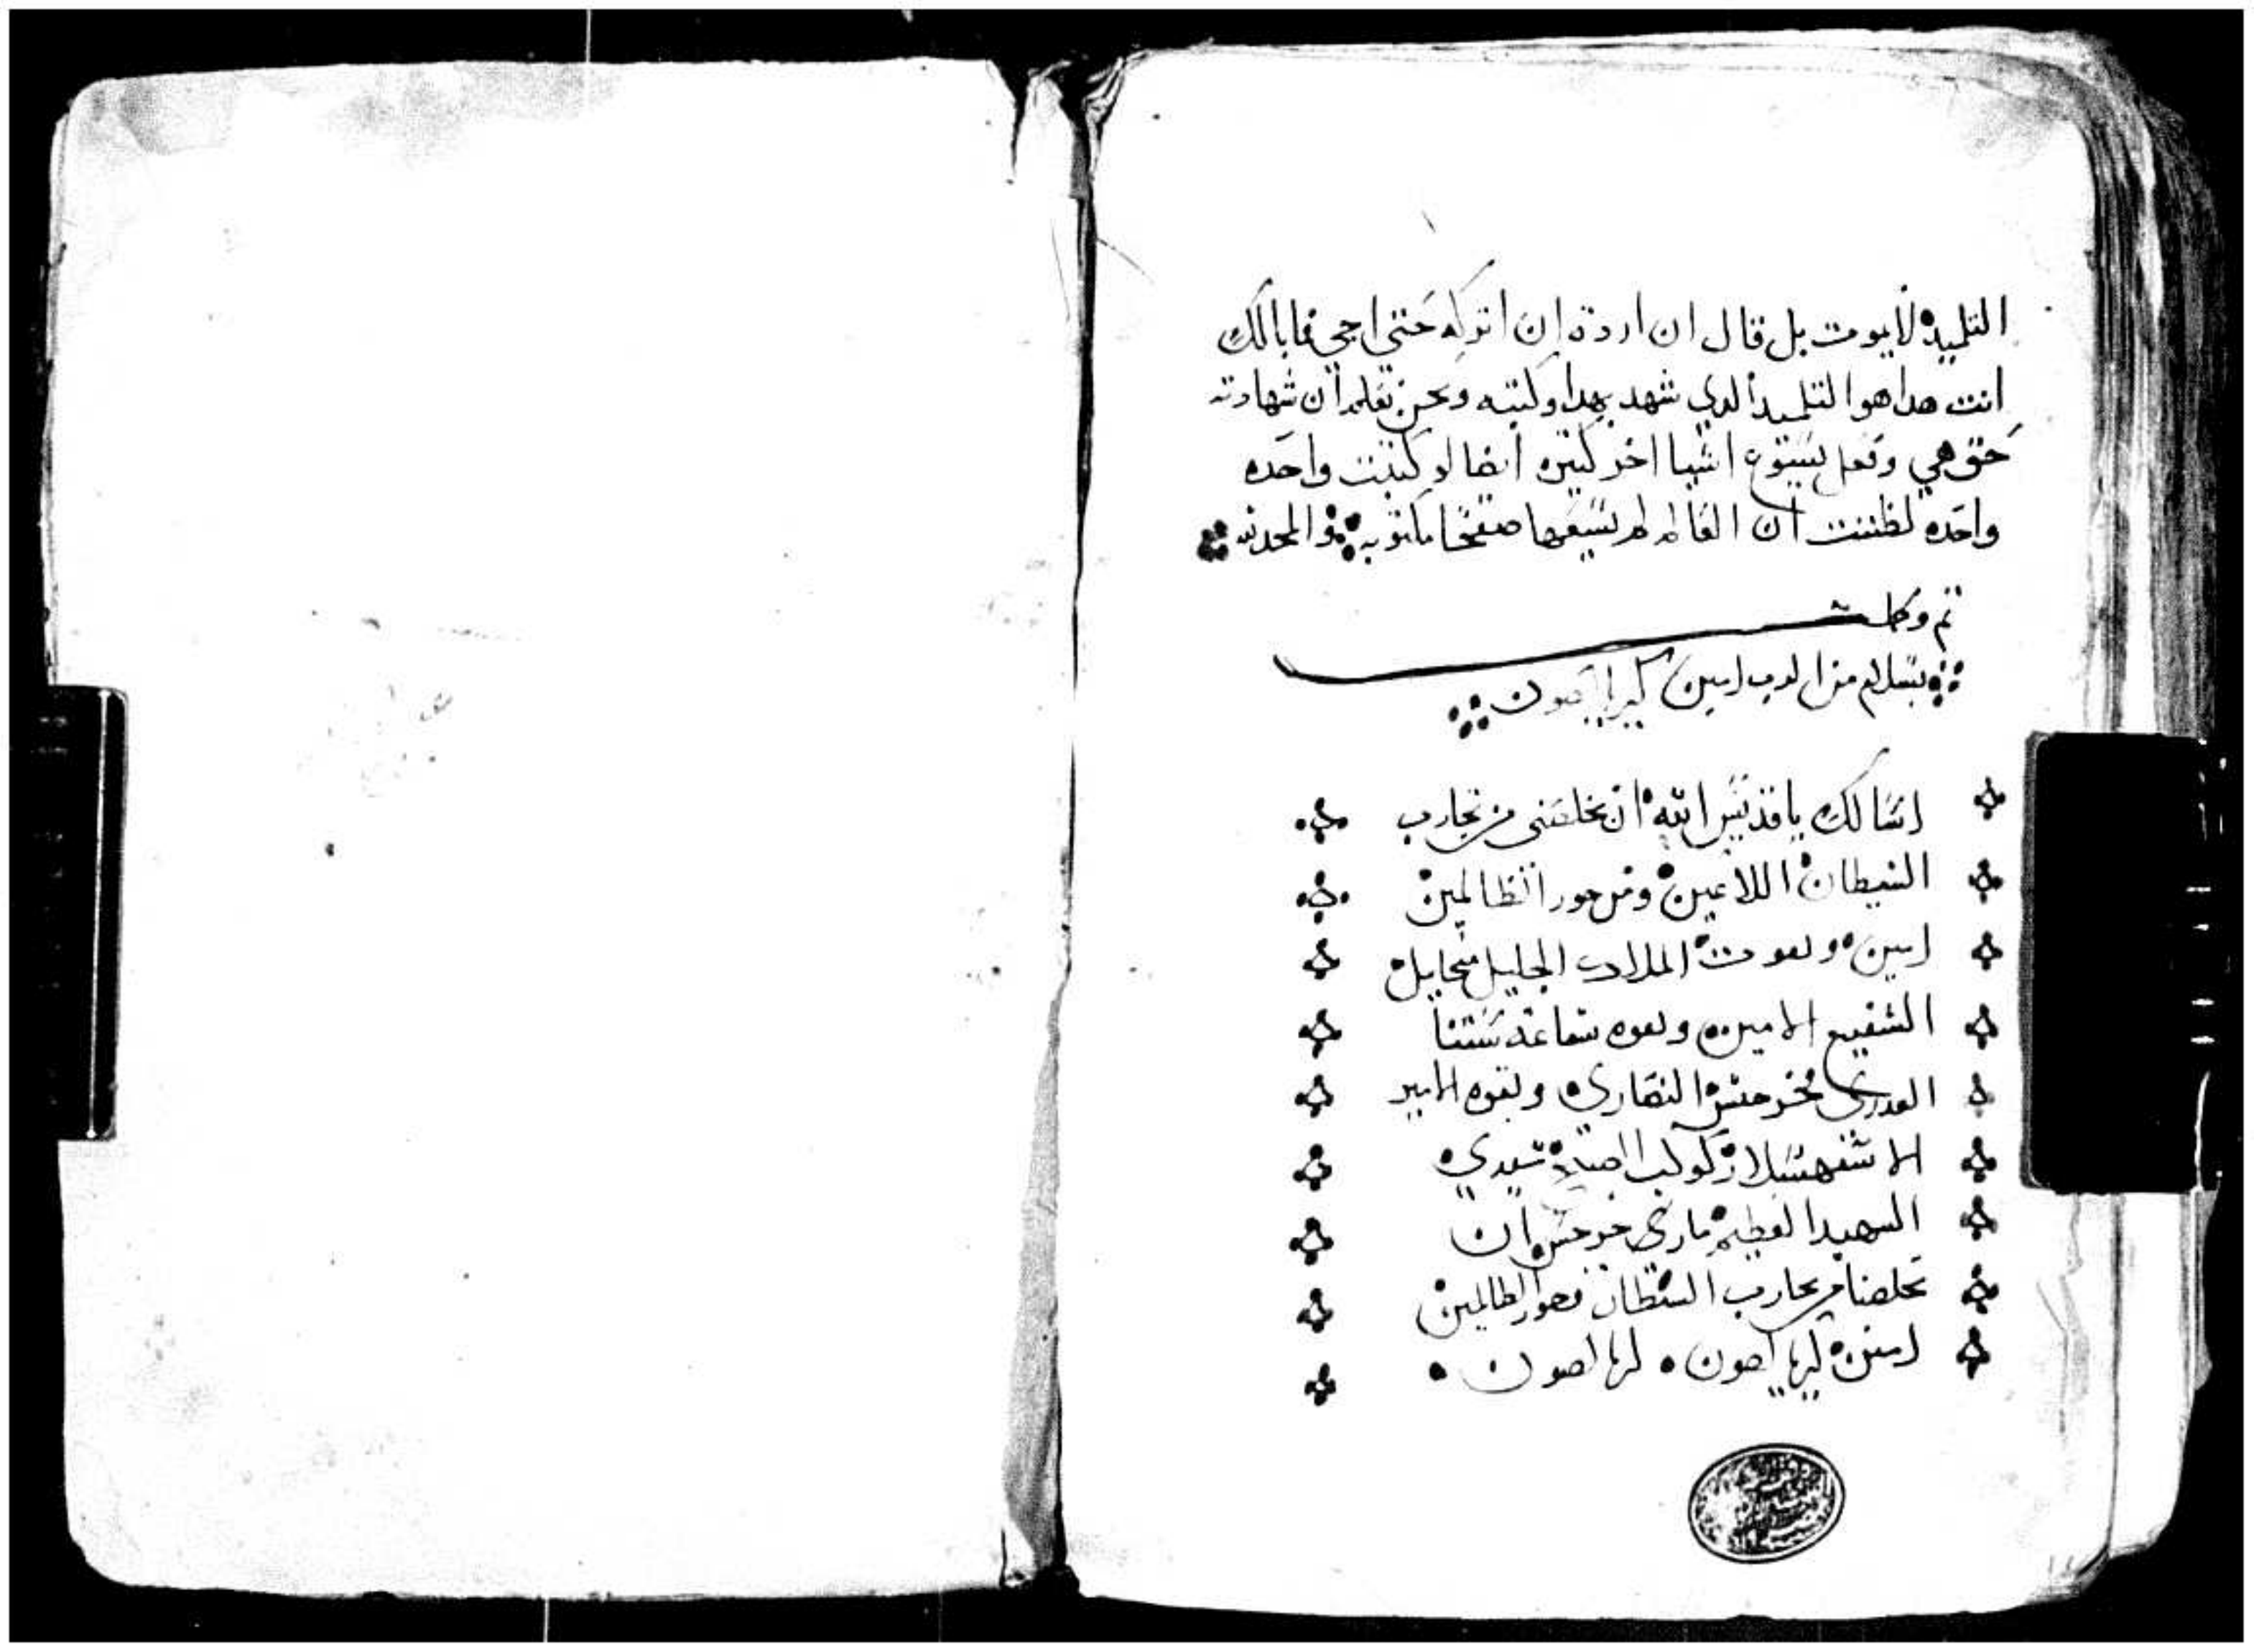 التلميد لايموت بل قال ان اردة ان اتركه حتي اجي فما بالك
انت هدا هو التلميد الدي شهد بهدا وكتبه ونحن نعلم ان شهادته
حق هي وفعل يسوع اشيا اخر كتيره ايضا لو كتبت واحده
واحده لظننت ان العالم لم يسعها صفحا مكتوبه والمجد لله
تم وكمل
بسلام من الرب امين كيريااصون
اسالك ياقديس الله ان تخلصني من تجارب
الشيطان اللاعين ومن جور الظالمين
امين وبقوت الملاك الجليل ميخايل
الشفيع الامين وبقوه شفاعة ستنا
العدري فخر جنس النصاري وبقوه الامير
الاسفهسلار كوكب الصبح سيدي
الشهيد العظيم ماري جرجس ان
تخلصنا من تجارب الشيطان وجور الظالمين
امين كيريااصون كريااصون